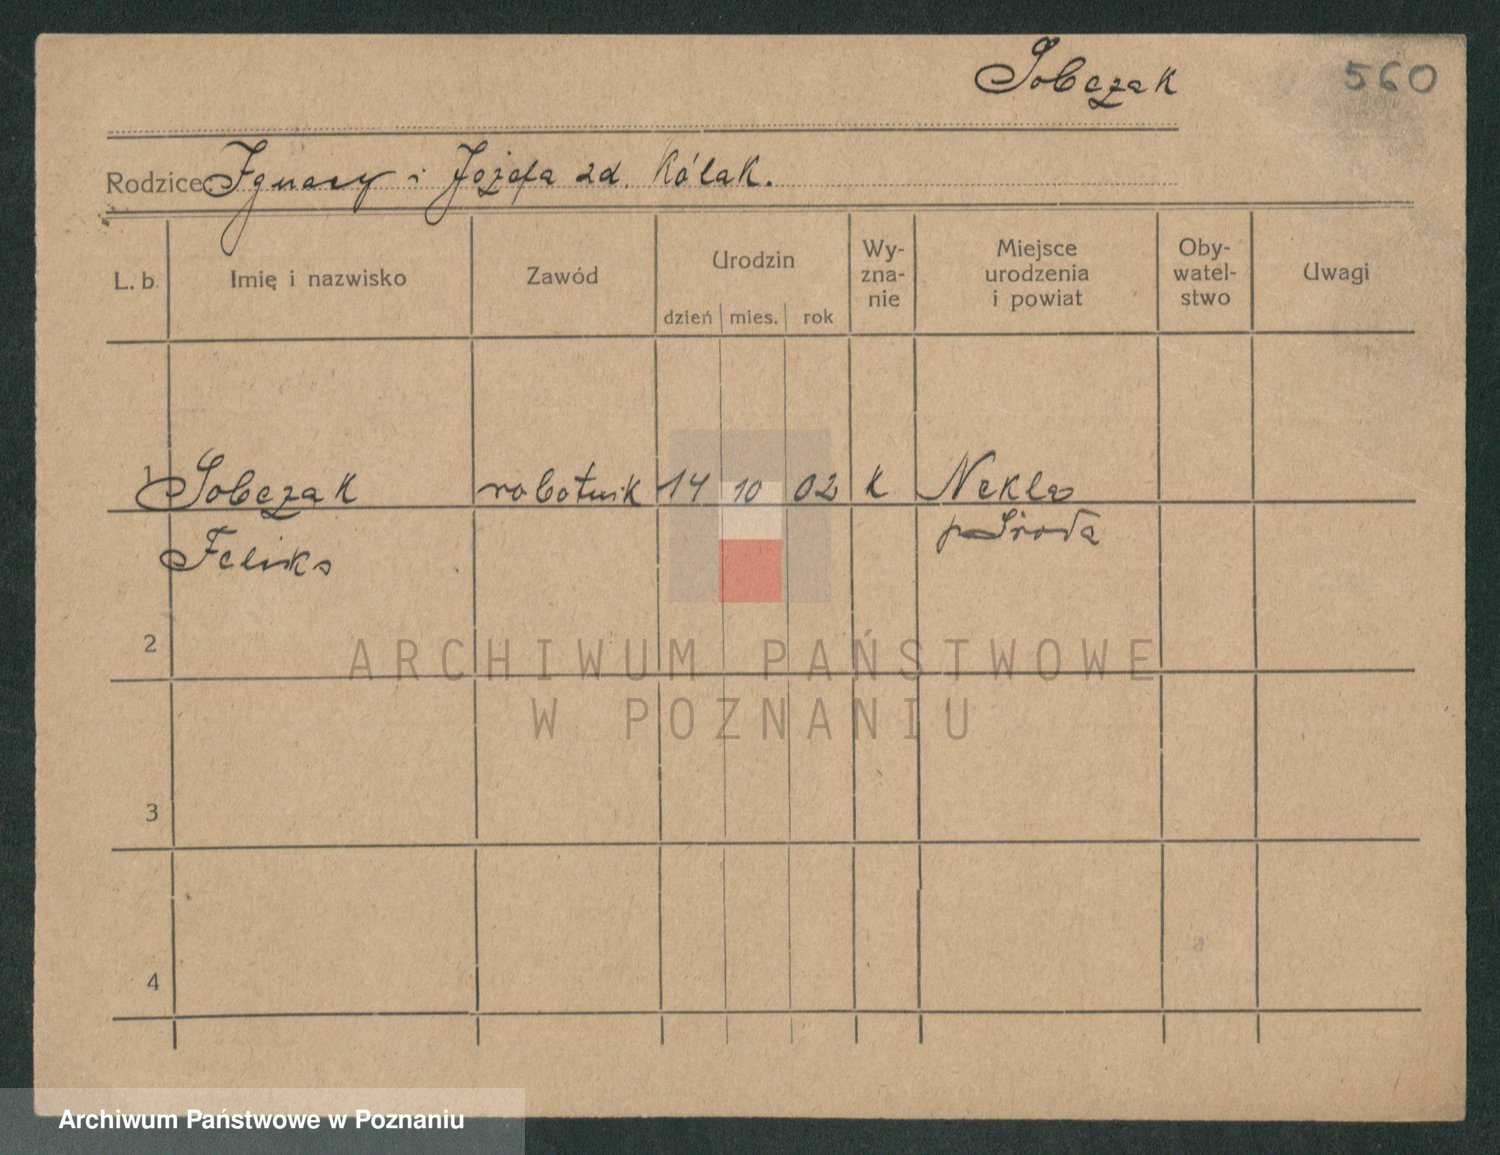 Sobczak
560
Rodzice: Ignacy i Józefa zd. Kólak.
L. b. Imię i nazwisko Zawód Urodzin dzień mies. rok Wy-zna-nie Miejsce urodzenia i powiat Oby-watel-stwo Uwagi
1 Sobczak robotnik 14 10 02 k Nekla
Feliks p Środa
2
ARCHIWUM PAŃSTWOWE
W POZNANIU
3
4
Archiwum Państwowe w Poznaniu